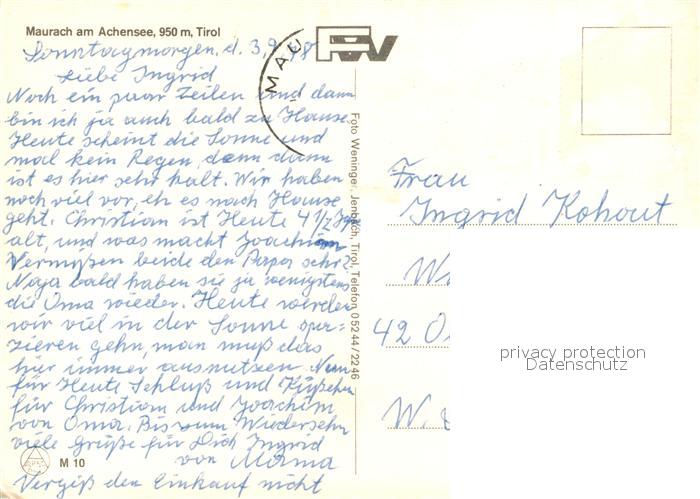 Maurach am Achensee, 950 m, Tirol
Sonntagmorgen, d. 3.9. 78
Liebe Ingrid
Noch ein paar Zeilen und dann
bin ich ja auch bald zu Hause
Heute scheint die Sonne und
mal kein Regen, denn dann
ist es hier sehr kalt. Wir haben
noch viel vor, eh es nach Hause
geht. Christian ist Heute 4 1/2
alt, und was macht Joachim
Vermißen beide den Papa sehr?
Naja bald haben sie ja wenigstens
die Oma wieder. Heute werden
wir viel in der Sonne spa=
zieren gehn, man muß das
hier immer ausnutzen. Nun
für Heute Schluß und Küßchen
für Christian und Joachim
von Oma. Bis zum Wiedersehn
viele Grüße für Dich Ingrid
von Mama
M 10
Vergiß den Einkauf nicht
MAU
Foto Weninger, Jenbach, Tirol, Telefon 05244/2246
Frau
Ingrid Kohout
W
42 O
W.
privacy protection
Datenschutz